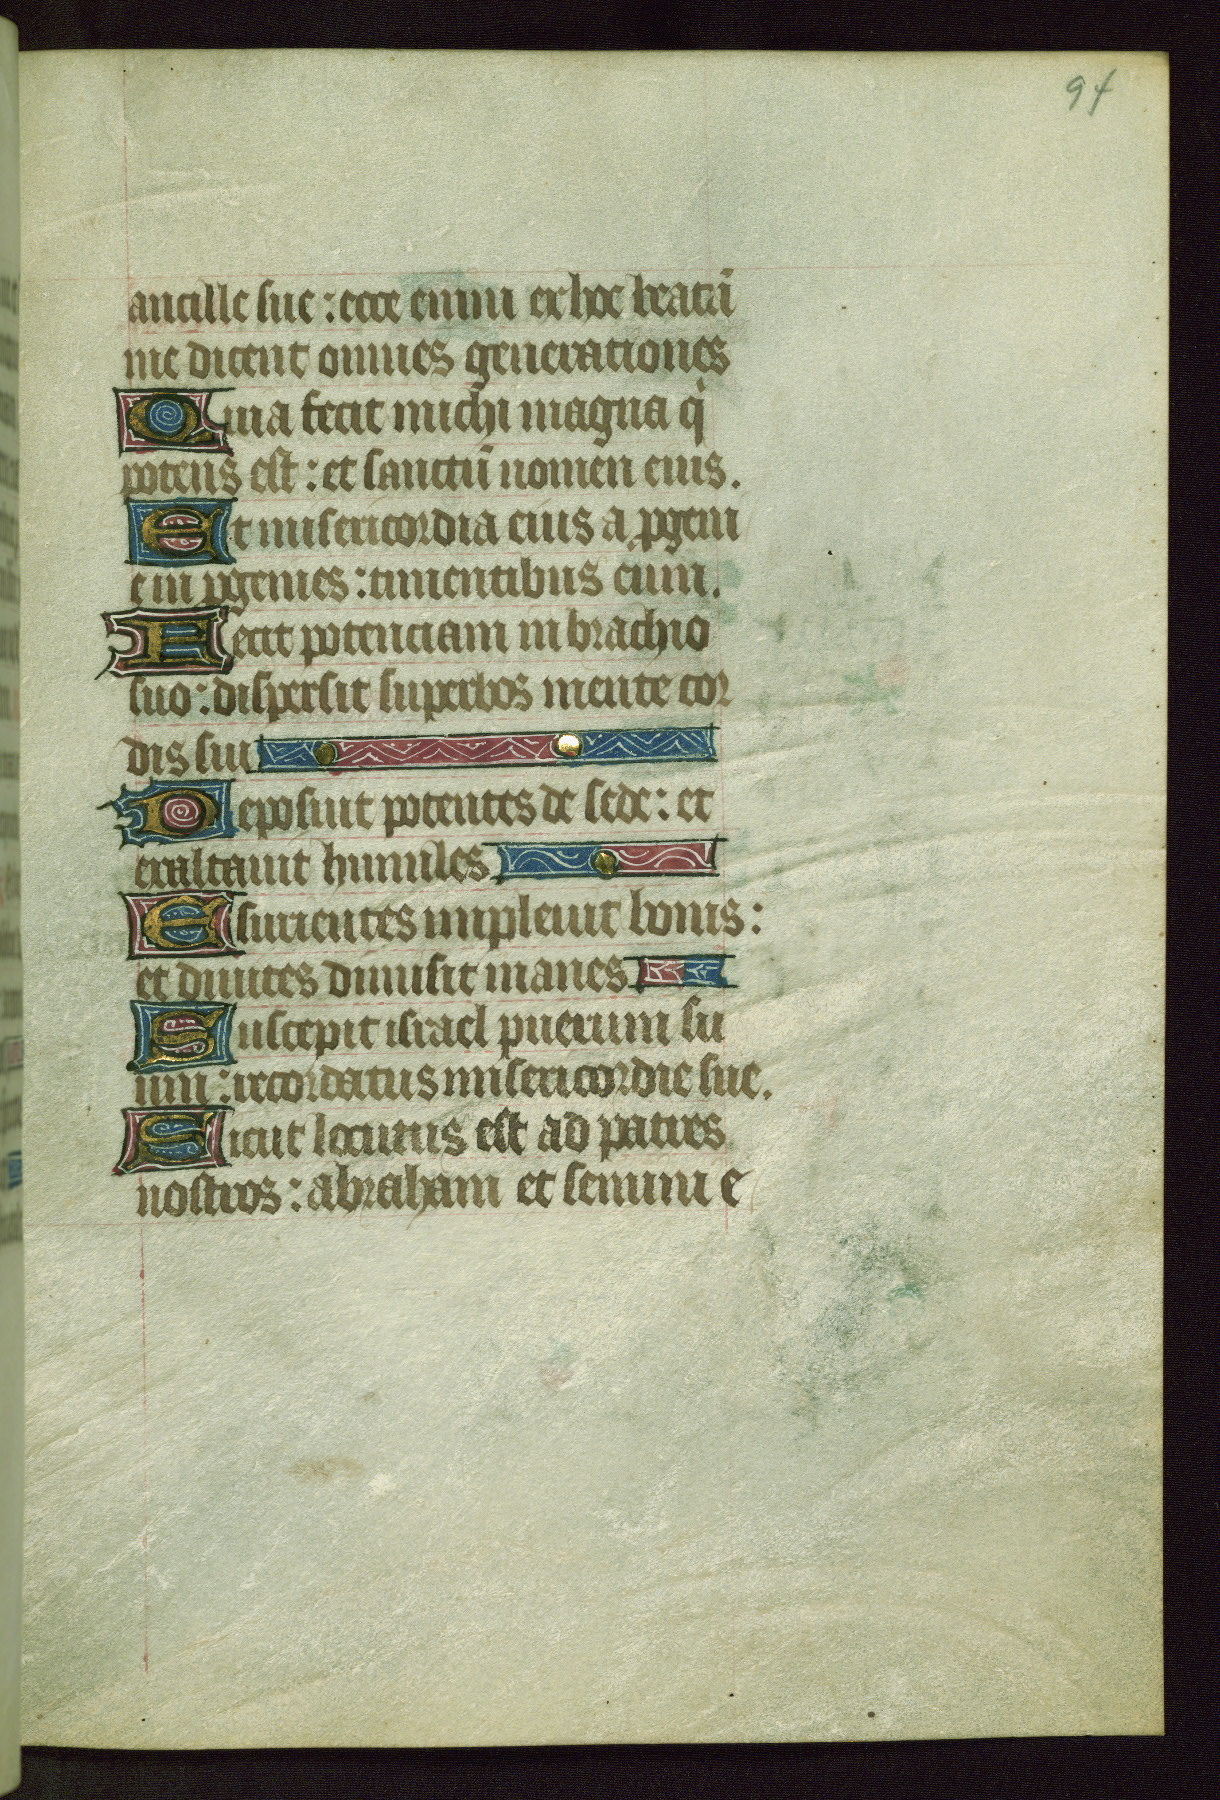 94
ancille sue : ecce enim ex hoc beatā
me dicent omnes generationes
Quia fecit michi magna q̇
potens est : et sanctū nomen eius.
Et misericordia eius a ꝓgeni
e in ꝓgenies : timentibus eum.
Fecit potenciam in brachio
suo : dispersit superbos mente cor
dis sui
Deposuit potentes de sede : et
exaltauit humiles.
Esurientes impleuit bonis :
et diuites dimisit inanes.
Suscepit israel puerum su
um : recordatus misericordie sue.
Sicut locutus est ad patres
nostros : abraham et semini e